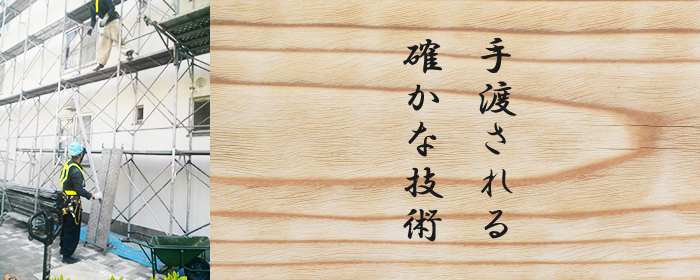 手渡される
確かな技術